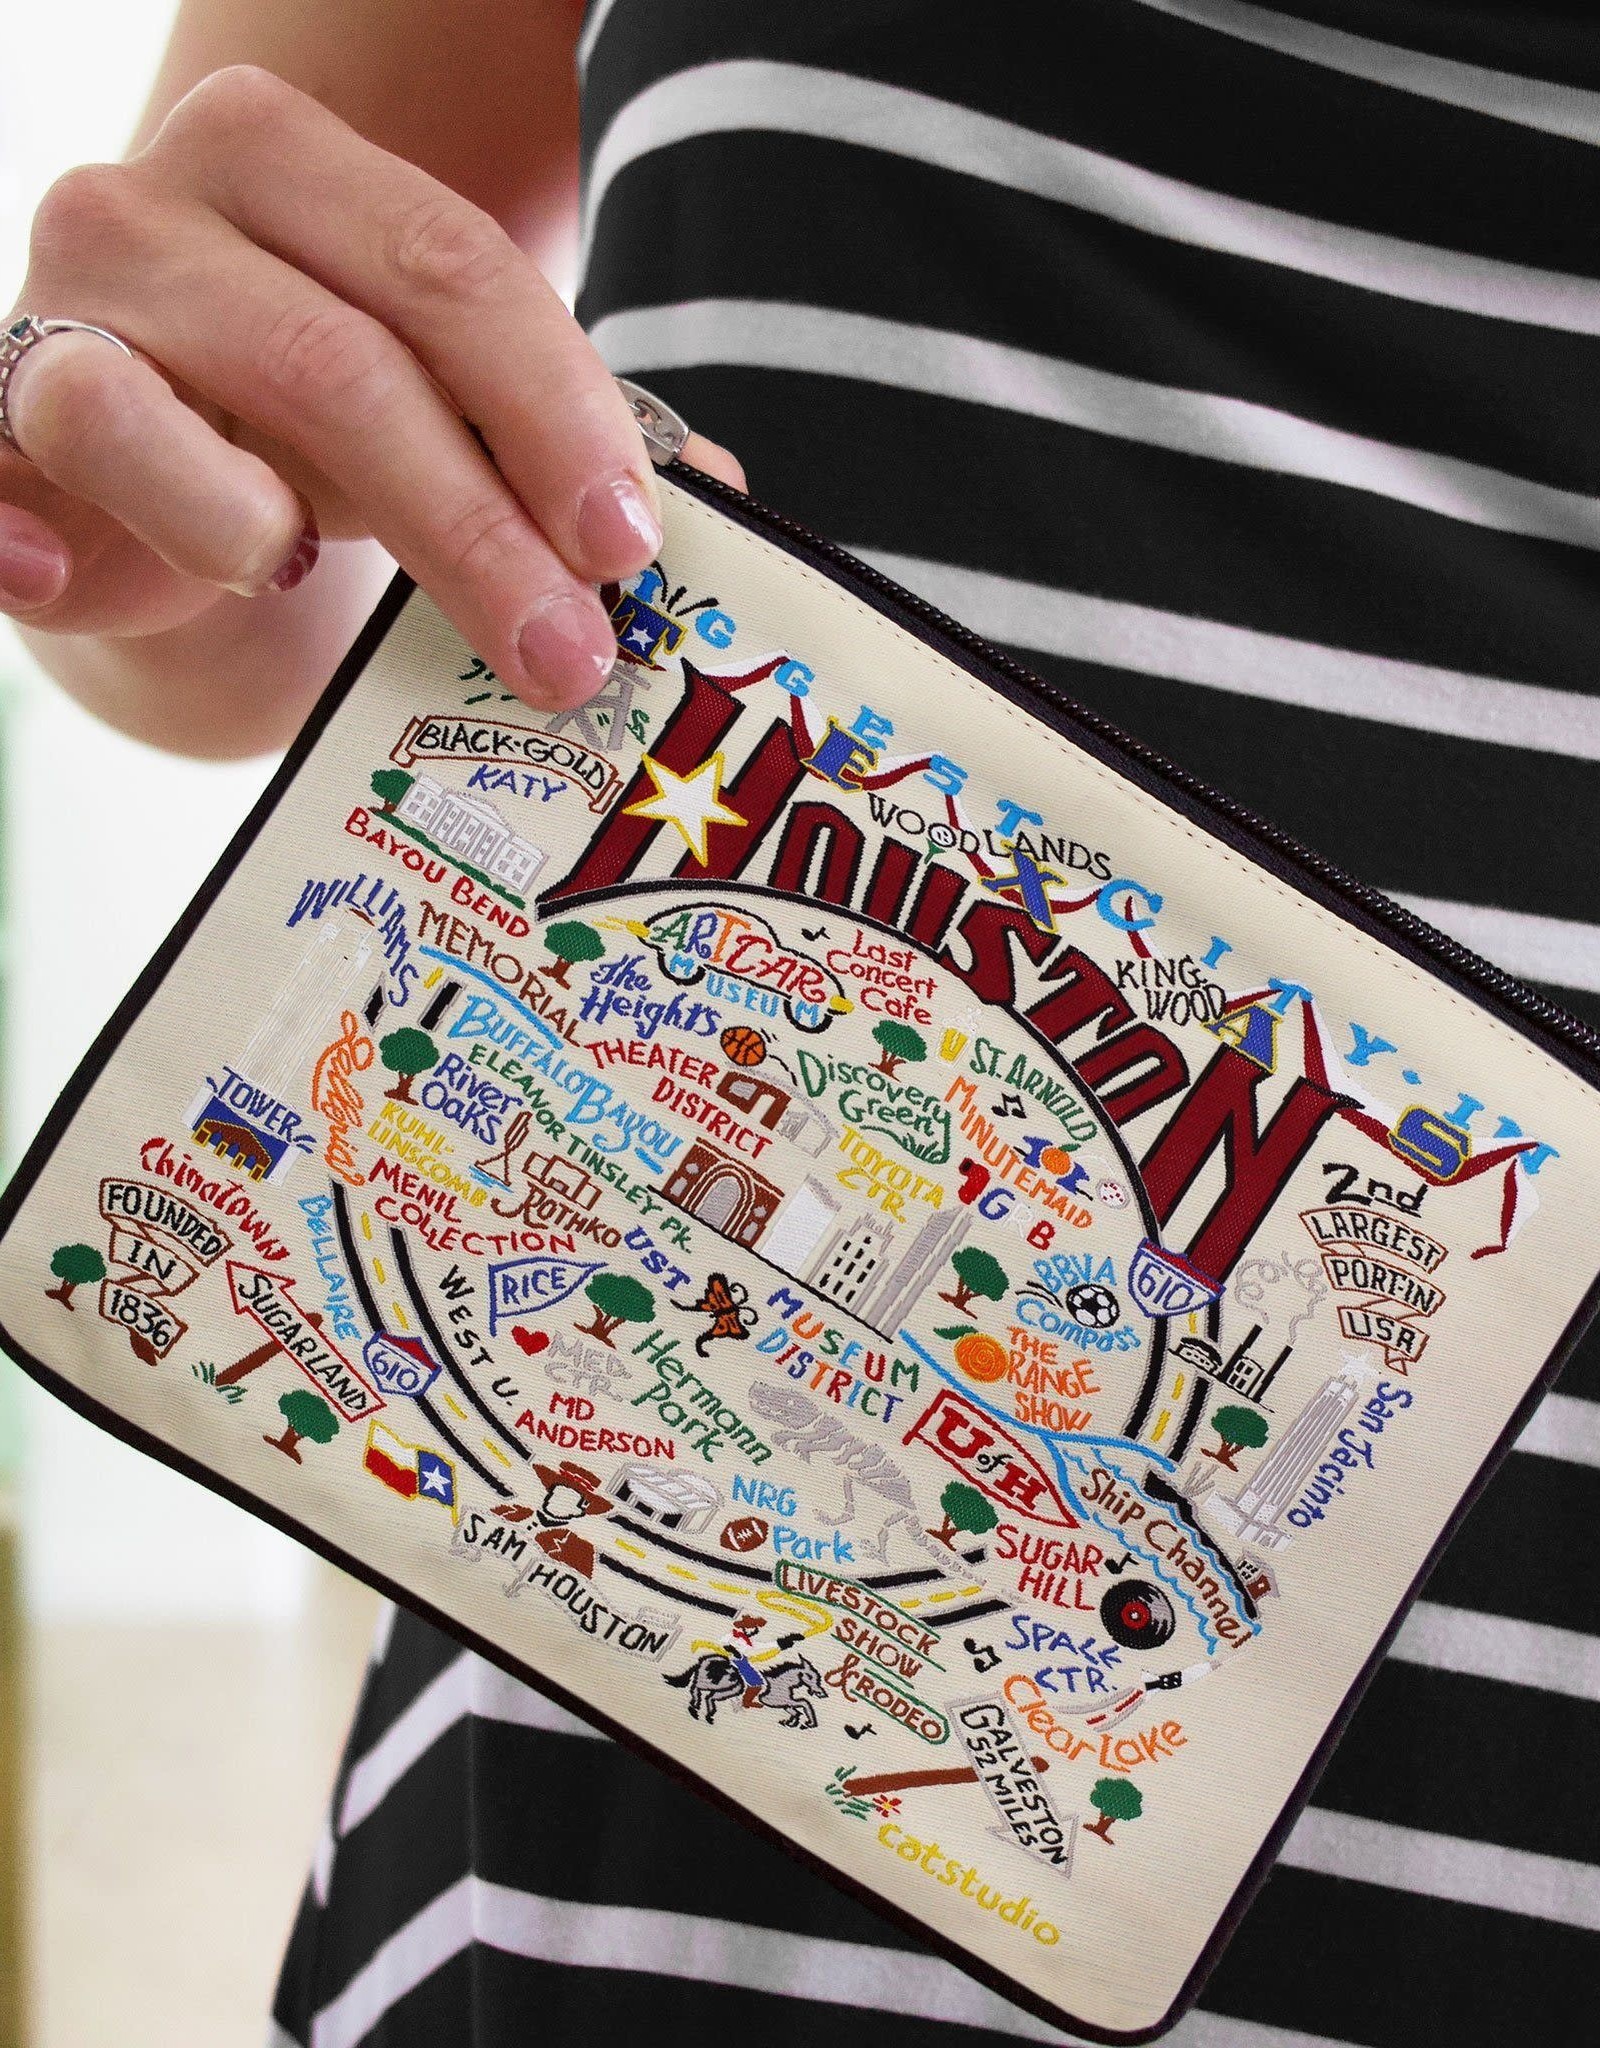 IGGEST CITY · IN
TEXAS
HOUSTON
BLACK-GOLD
KATY
BAYOU BEND
WOODLANDS
KING
WOOD
WILLIAMS
TOWER
MEMORIAL
ART CAR
MUSEUM
Last
Concert
Cafe
The
Heights
BUFFALO BAYOU
THEATER
DISTRICT
Discovery
Green
ST. ARNOLD
MINUTEMAID
River
Oaks
ELEANOR TINSLEY PK.
KUHL-
LINSCOMB
ROTHKO
MENIL
COLLECTION
TOYOTA
CTR.
GRB
BBVA
Compass
610
2nd
LARGEST
PORT-IN
USA
Chinatown
FOUNDED
IN
1836
BELLAIRE
SUGARLAND
610
WEST U.
RICE
UST
MUSEUM
DISTRICT
THE
ORANGE
SHOW
MED.
CTR.
Hermann
Park
MD
ANDERSON
U of H
Ship Channel
San Jacinto
NRG
Park
SUGAR
HILL
SAM HOUSTON
LIVESTOCK
SHOW
& RODEO
SPACE
CTR.
Clear Lake
GALVESTON
52 MILES
catstudio